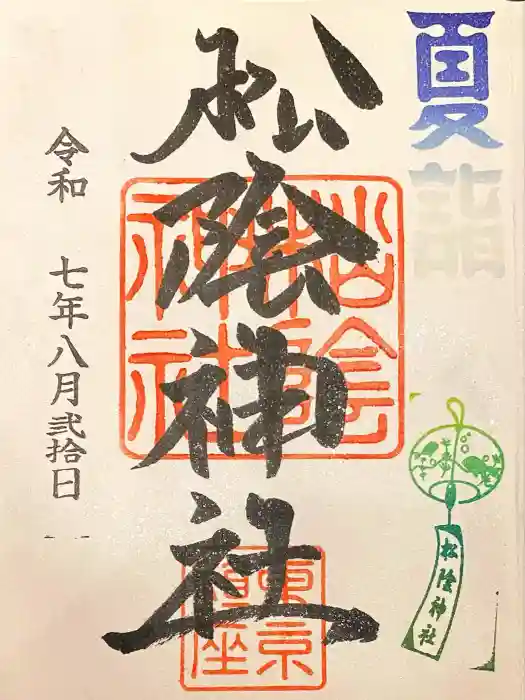 夏詣
松陰神社
松陰神社
東京世田谷鎮座
令和 七年八月弐拾日
松陰神社